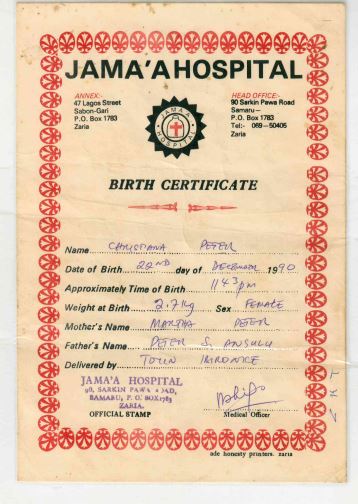 JAMA'A HOSPITAL
ANNEX:-
47 Lagos Street
Sabon-Gari
P.O. Box 1783
Zaria
HEAD OFFICE:-
90 Sarkin Pawa Road
Samaru—
P.O. Box 1783
Tel:- 069—50405
Zaria
JAMA'A HOSPITAL
BIRTH CERTIFICATE
Name CHRISTIANA PETER
Date of Birth 22ND day of DECEMBER 1990
Approximately Time of Birth 11 43 pm
Weight at Birth 2.7kg Sex FEMALE
Mother's Name MARTHA PETER
Father's Name PETER S. ANSULU
Delivered by TOLU
JAMA'A HOSPITAL
90, SARKIN PAWA ROAD,
SAMARU, P. O. BOX 1783
ZARIA.
OFFICIAL STAMP
Medical Officer
ade honesty printers. zaria